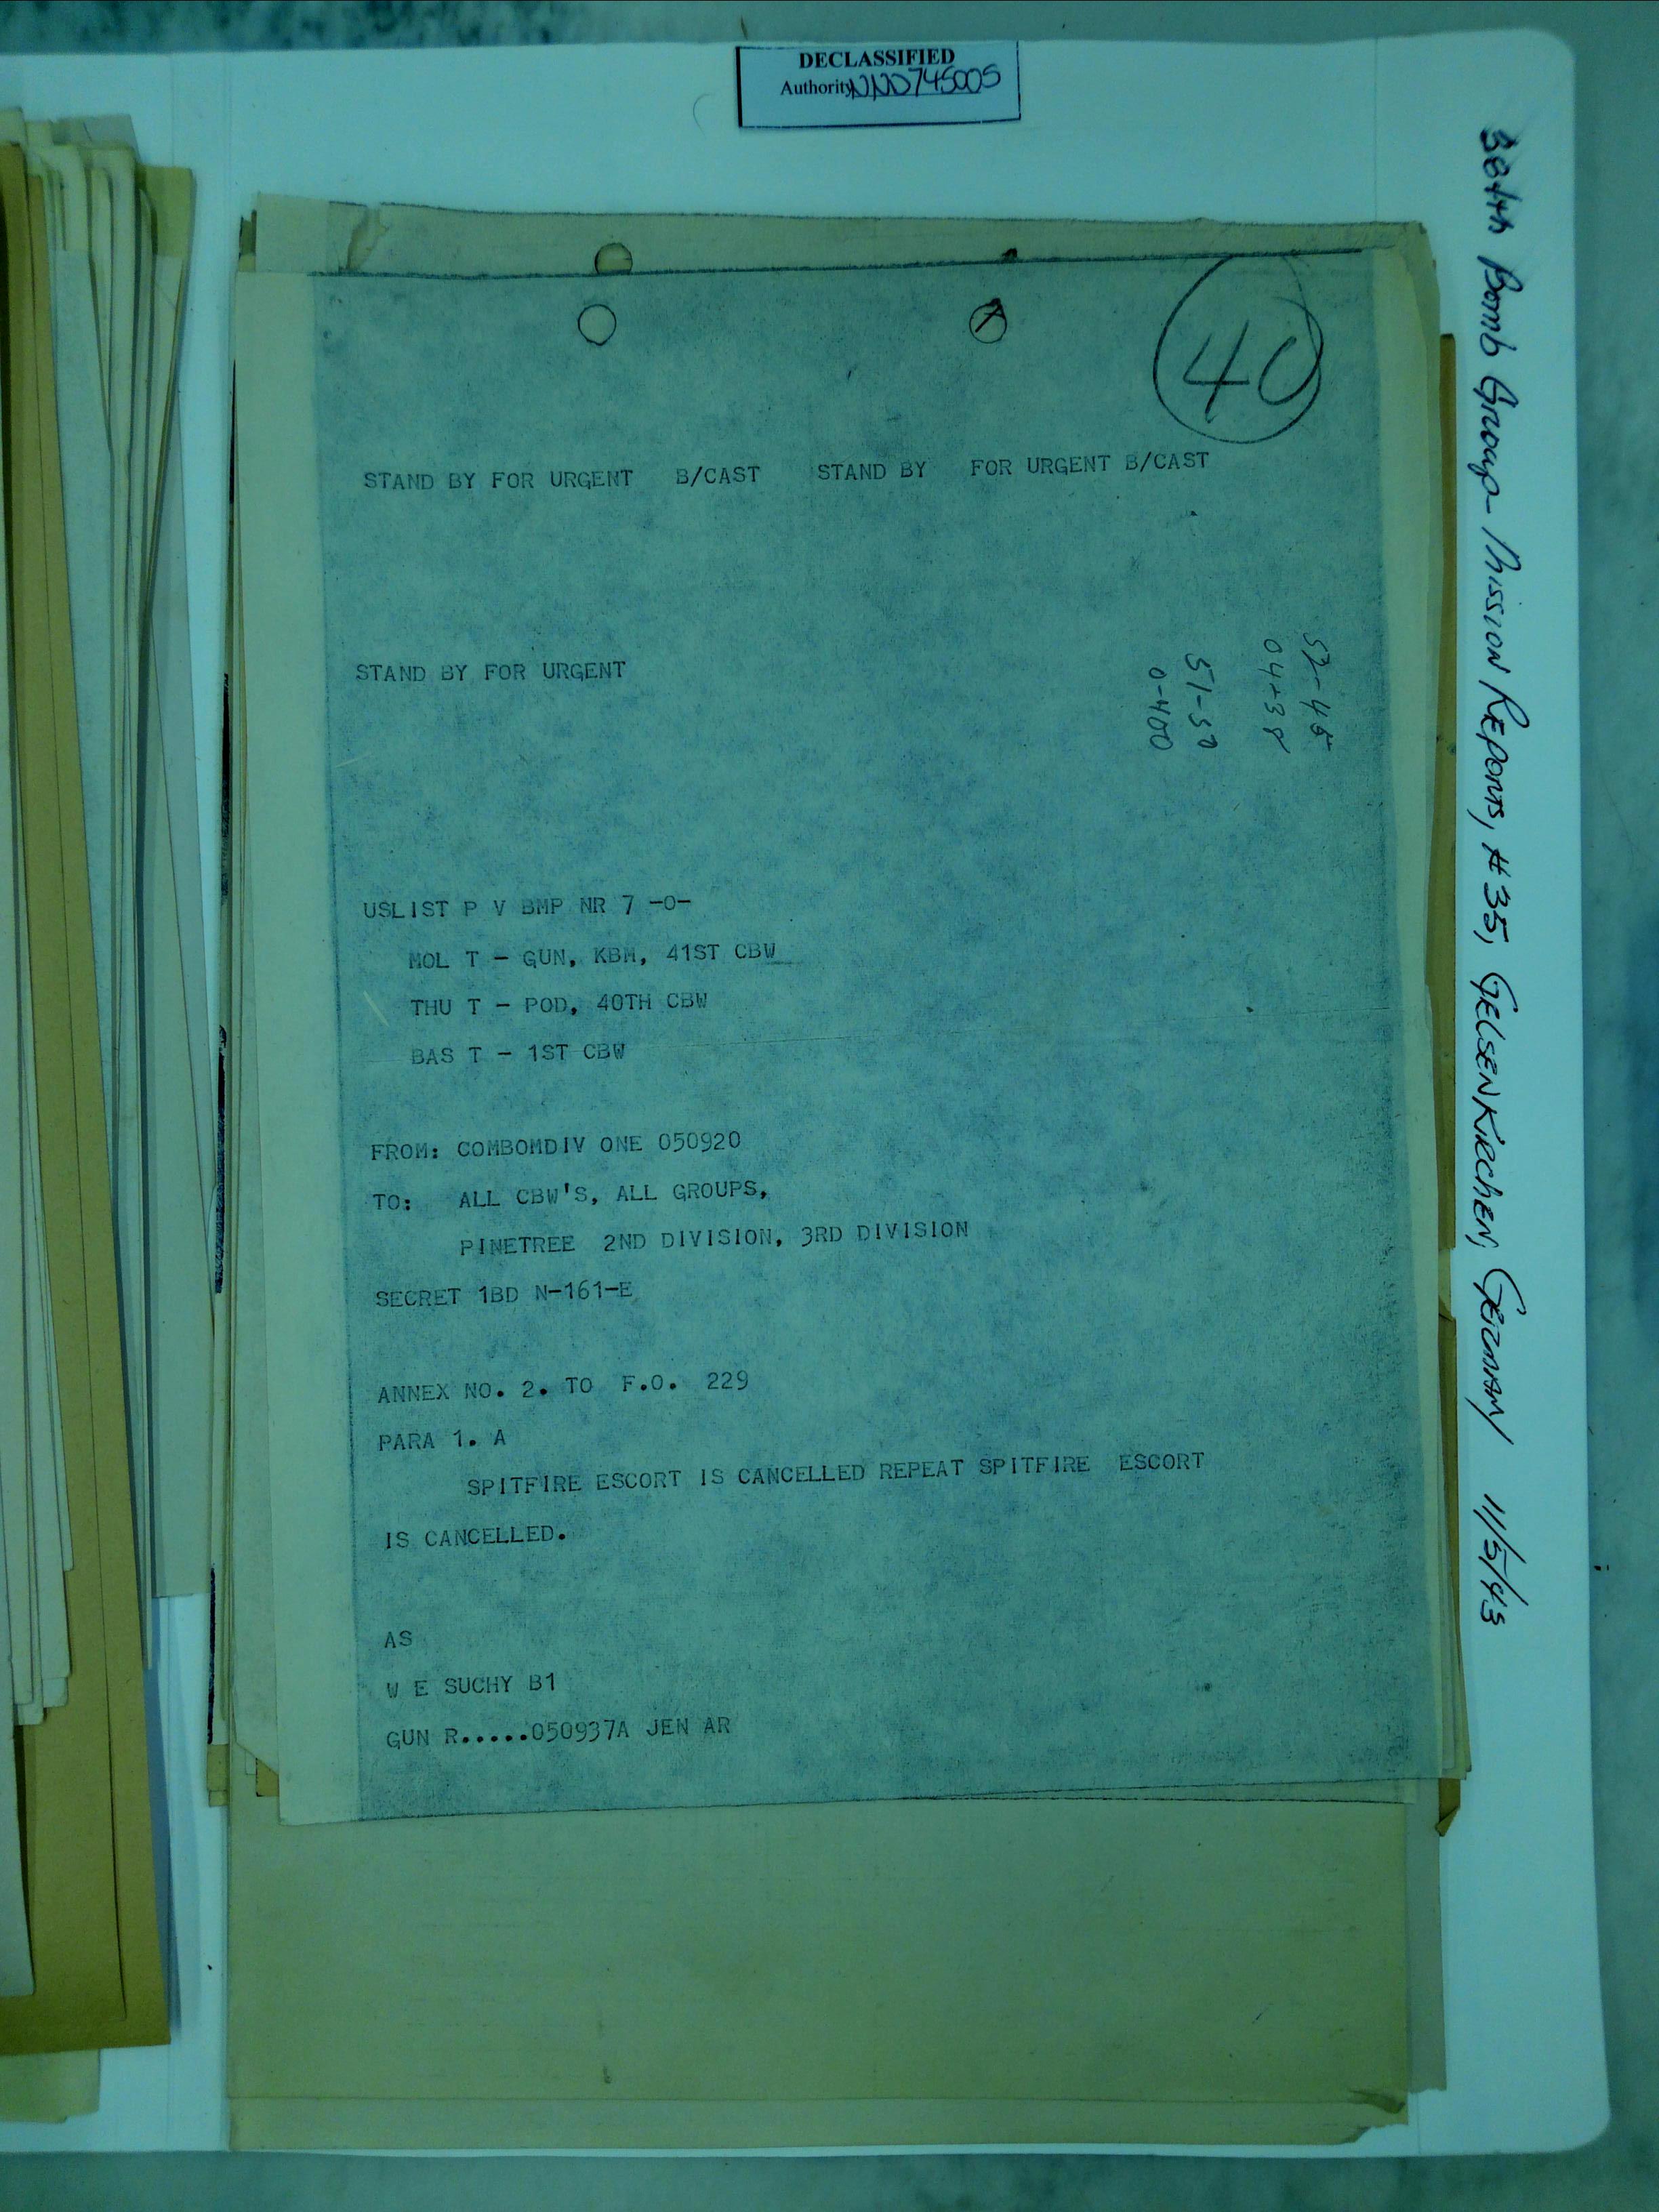 DECLASSIFIED
Authority NND745005
384th Bomb Group - Mission Reports, #35, Gelsenkirchen, Germany 11/5/43
40
STAND BY FOR URGENT B/CAST STAND BY FOR URGENT B/CAST
52-45
04+38
51-50
0-400
STAND BY FOR URGENT
USLIST P V BMP NR 7 -O-
MOL T - GUN, KBM, 41ST CBW
THU T - POD, 40TH CBW
BAS T - 1ST CBW
FROM: COMBOMDIV ONE 050920
TO: ALL CBW'S, ALL GROUPS,
PINETREE 2ND DIVISION, 3RD DIVISION
SECRET 1BD N-161-E
ANNEX NO. 2. TO F.O. 229
PARA 1. A
SPITFIRE ESCORT IS CANCELLED REPEAT SPITFIRE ESCORT
IS CANCELLED.
AS
W E SUCHY B1
GUN R.....050937A JEN AR